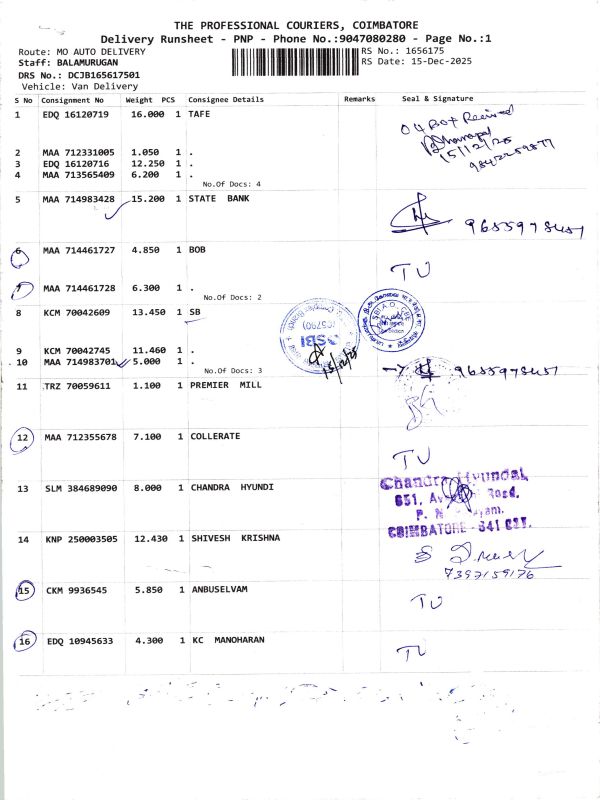 THE PROFESSIONAL COURIERS, COIMBATORE
Delivery Runsheet - PNP - Phone No.:9047080280 - Page No.:1
Route: MO AUTO DELIVERY
RS No.: 1656175
Staff: BALAMURUGAN
RS Date: 15-Dec-2025
DRS No.: DCJB165617501
Vehicle: Van Delivery
S No Consignment No Weight PCS Consignee Details Remarks Seal & Signature
1 EDQ 16120719 16.000 1 TAFE
04 Box Received
15/12/25
2 MAA 712331005 1.050 1 .
3 EDQ 16120716 12.250 1 .
4 MAA 713565409 6.200 1 .
No.Of Docs: 4
5 MAA 714983428 15.200 1 STATE BANK
6 MAA 714461727 4.850 1 BOB
TU
7 MAA 714461728 6.300 1 .
No.Of Docs: 2
8 KCM 70042609 13.450 1 SB
SBI
9 KCM 70042745 11.460 1 .
10 MAA 714983701 5.000 1 .
No.Of Docs: 3
11 TRZ 70059611 1.100 1 PREMIER MILL
12 MAA 712355678 7.100 1 COLLERATE
TU
13 SLM 384689090 8.000 1 CHANDRA HYUNDI
Chandra Hyundai,
651, Road,
COIMBATORE - 641
14 KNP 250003505 12.430 1 SHIVESH KRISHNA
7397159176
15 CKM 9936545 5.850 1 ANBUSELVAM
TU
16 EDQ 10945633 4.300 1 KC MANOHARAN
TU